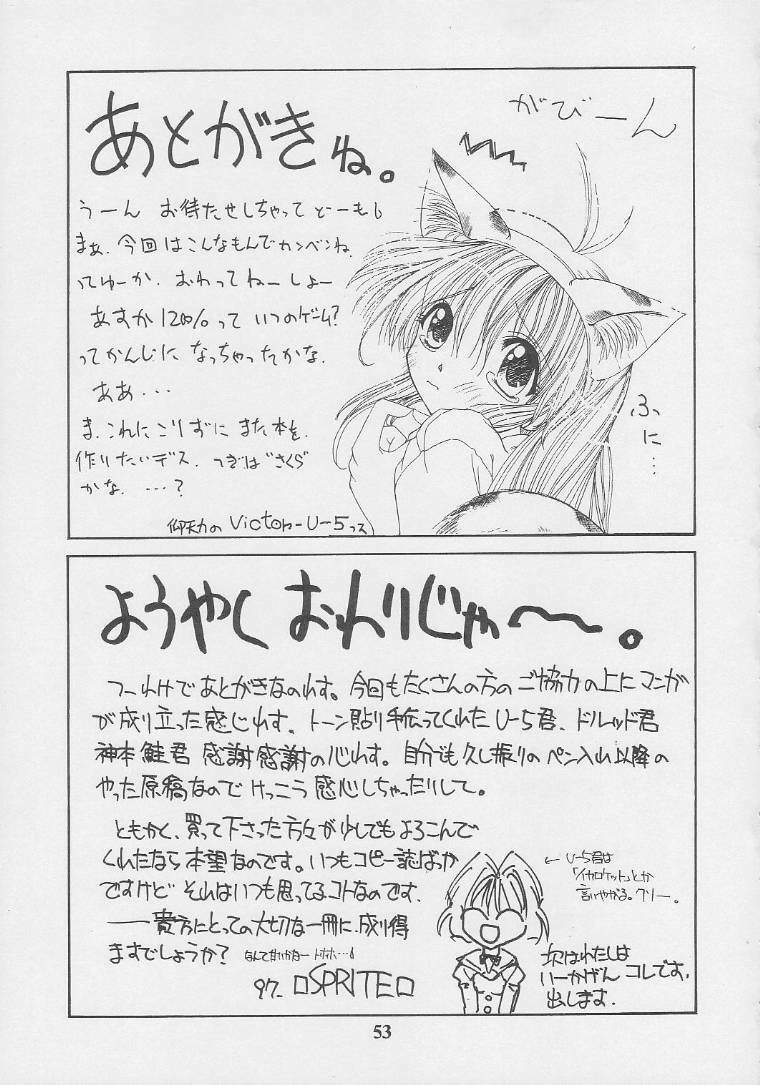 あとがきね。
がびーん
うーん お待たせしちゃって どーも
まぁ、今回はこんなもんでカンベンね
ってゆーか、おわってねーしょー
あすか120%って いつのゲーム?
ってかんじに なっちゃったかな。
ああ・・・
ま、これにこりずに また本を
作りたいデス。 つぎは"さくら"
かな。 ・・・?
ふに…
Victor-U-5
ようやく おわりじゃ〜〜。
つーわけであとがきなのれす。今回もたくさんの方のご協力の上にマンガ
が成り立った感じれす。トーン貼り手伝ってくれたU-5君、ドルッド君
神本 鮭君 感謝感謝の心れす。自分でも久し振りのペン入れ以降の
やった原稿なので けっこう 感心しちゃったりして。
ともかく、買って下さった方々が少しでもよろこんで
くれたなら本望なのです。いつもコピー誌ばっか
ですけど それはいつも思ってるコトなのです。
――貴方にとっての大切な一冊に、成り得
ますでしょうか? なんて甘いかなー トホホ…
97_ □SPRITE□
← U-5君は
「イカロケット」とか
言いやがる。クリー。
次はわたしは
いーかげん コレです。
出します。
53